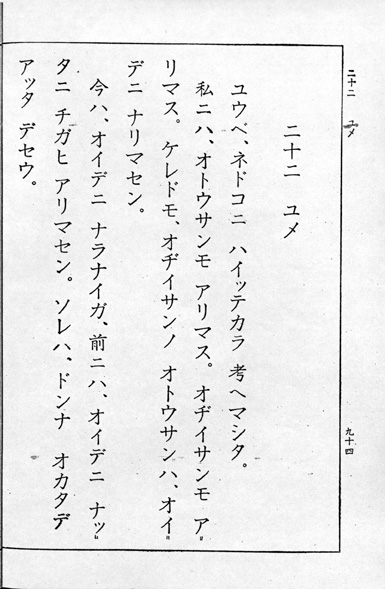 二十二 ユメ
九十四
二十二 ユメ
ユウベ、ネドコニ ハイッテカラ 考ヘマシタ。
私ニハ、オトウサンモ アリマス。オヂイサンモ ア〃
リマス。ケレドモ、オヂイサンノ オトウサンハ、オイ〃
デニ ナリマセン。
今ハ、オイデニ ナラナイガ、前ニハ、オイデニ ナッ〃
タニ チガヒ アリマセン。ソレハ、ドンナ オカタデ
アッタ デセウ。